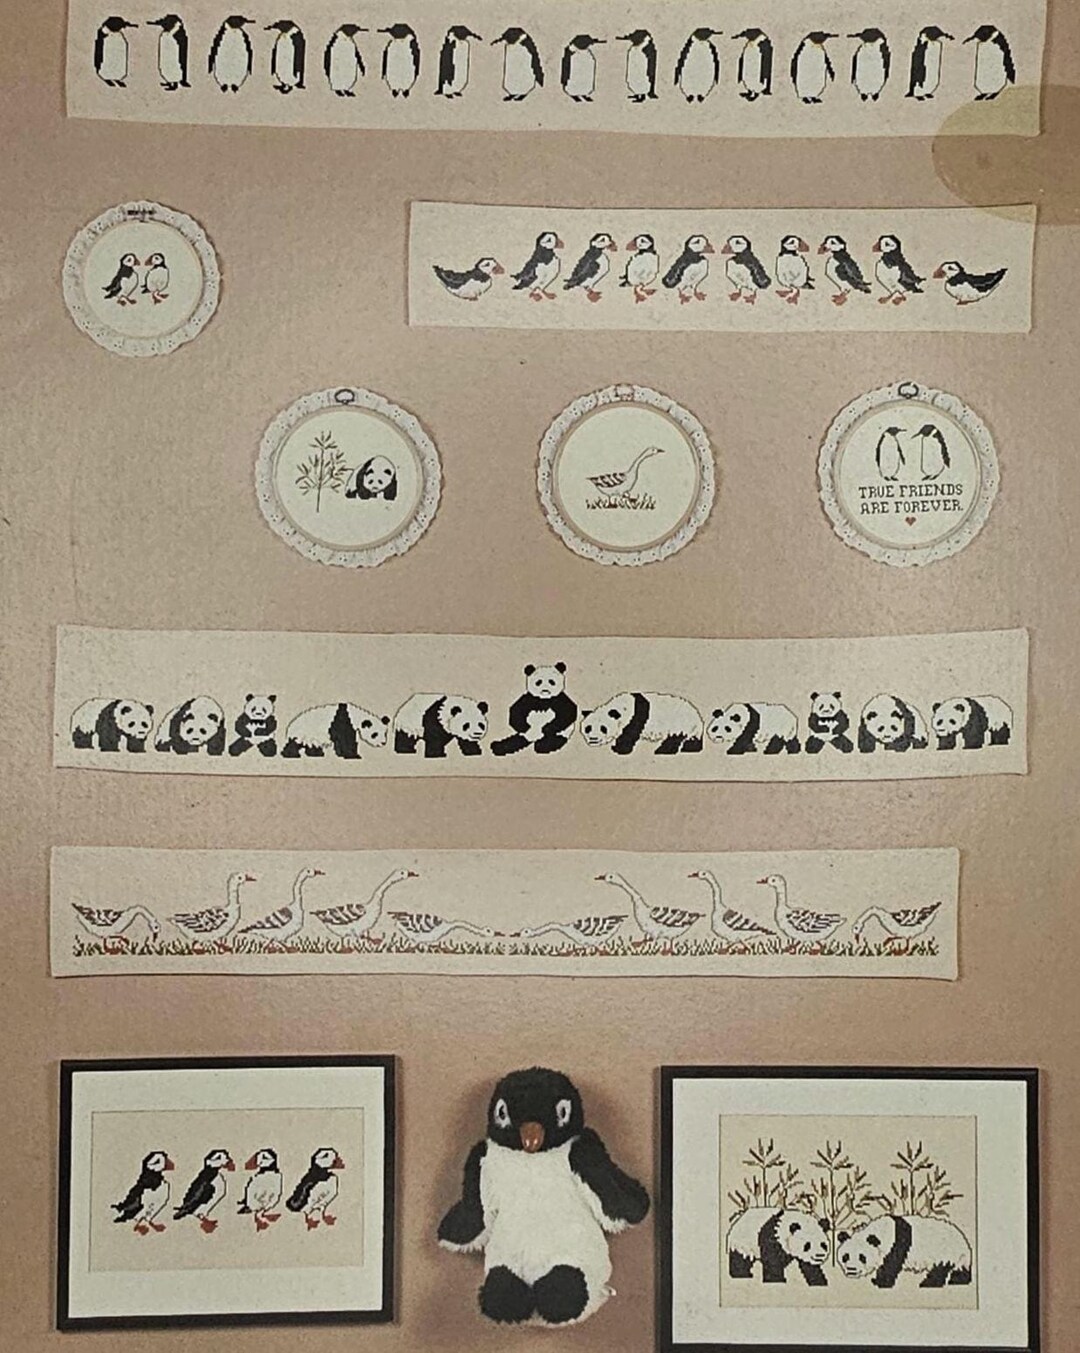 TRUE FRIENDS
ARE FOREVER.